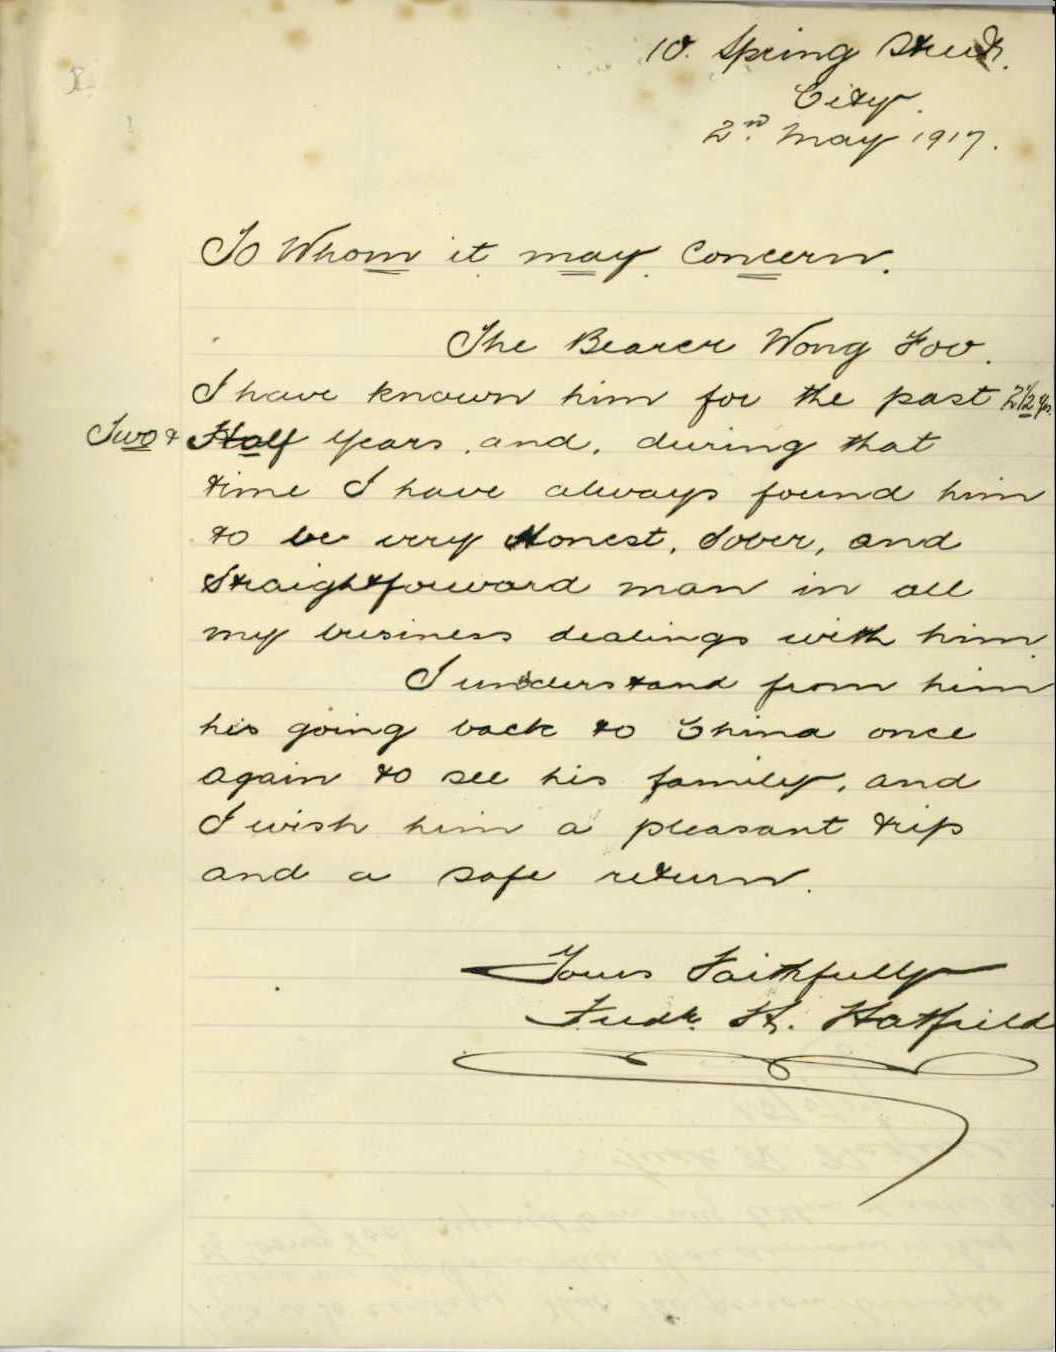 10. Spring Street.
City.
2nd May 1917.
To Whom it may Concern.
The Bearer Wong Foo.
I have known him for the past 2 1/2 yrs.
Two & Half years, and, during that
time I have always found him
to be very Honest, Sober, and
Straightforward man in all
my business dealings with him.
I understand from him
his going back to China once
again to see his family, and
I wish him a pleasant trip
and a safe return.
Yours Faithfully
Fredk. H. Hatfield